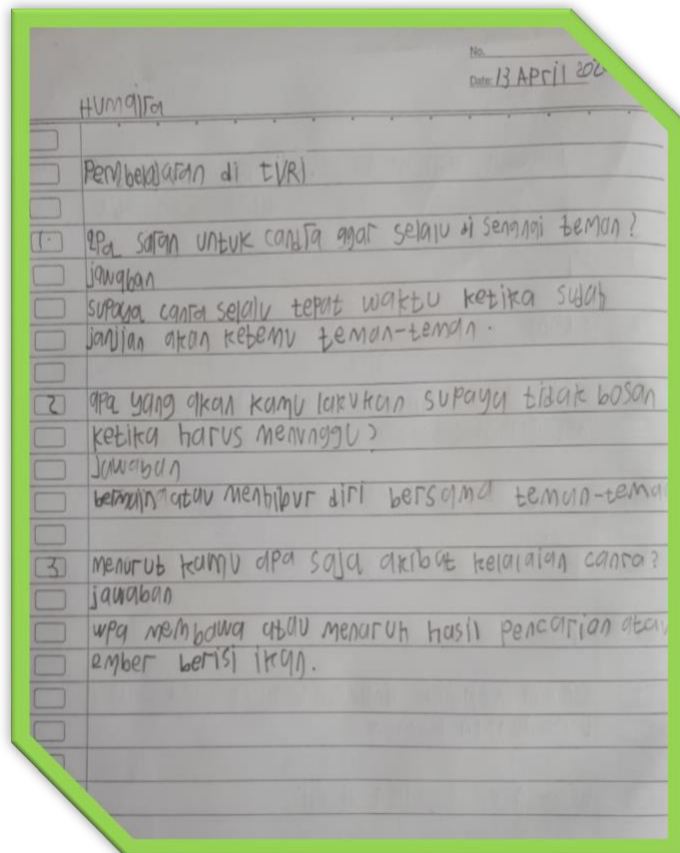 No.
Date: 13 April 202
Humaira
Pembelajaran di tVRI
1. apa saran untuk candra agar selalu di senangi teman?
jawaban
supaya canra selalu tepat waktu ketika sudah
janjian akan ketemu teman-teman.
2 apa yang akan kamu lakukan supaya tidak bosan
ketika harus menunggu?
Jawaban
bermain atau menhibur diri bersama teman-tema
3 menurut kamu apa saja akibat kelalaian canra?
jawaban
wpa membawa atau menaruh hasil pencarian atau
ember berisi ikan.